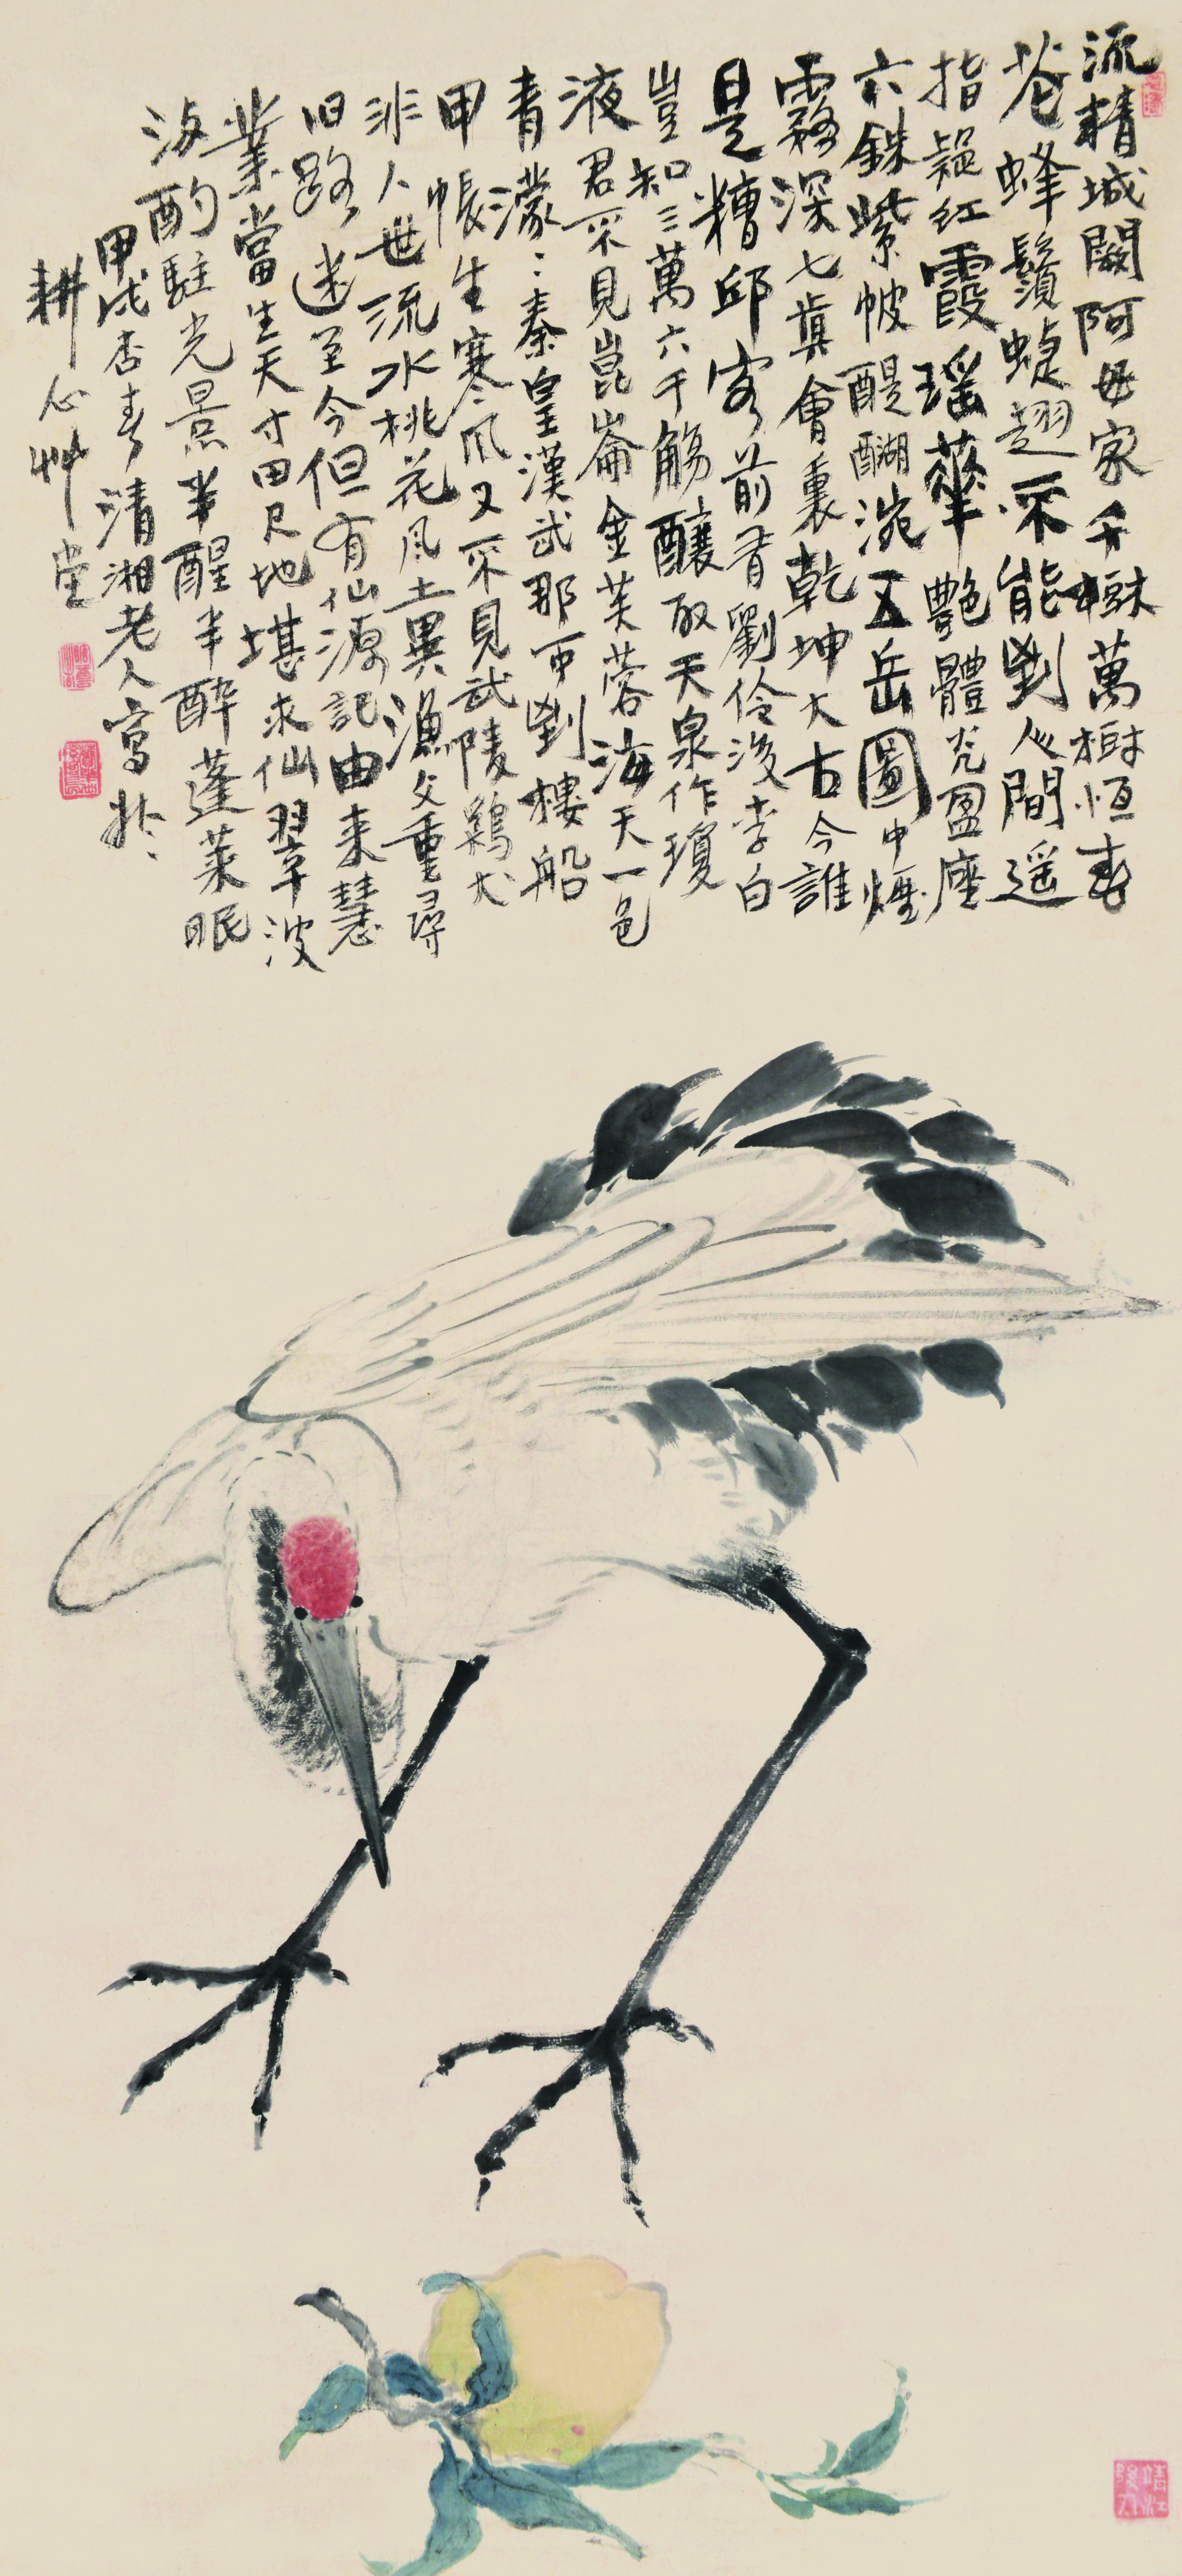 流精城闕阿母家千樹萬樹恒春
花蜂鬚蜨翅不能到人間遥
指疑紅霞瑶華艷體光盈座
六銖紫帔醍醐涴五岳圖中煙
霧深七真會裏乾坤大古今誰
是糟邱客前有劉伶後李白
豈知三萬六千觴釀取天泉作瓊
液君不見崑崙金芙蓉海天一色
青濛〻秦皇漢武那可到樓船
甲帳生寒風又不見武陵鷄犬
非人世流水桃花風土異漁父重尋
旧路迷至今但有仙源記由来慧
業當生天寸田尺地堪求仙翠波
海酌駐光景半醒半醉蓬萊眠
甲戌杏春清湘老人寫於
耕心艸堂
靖江後人